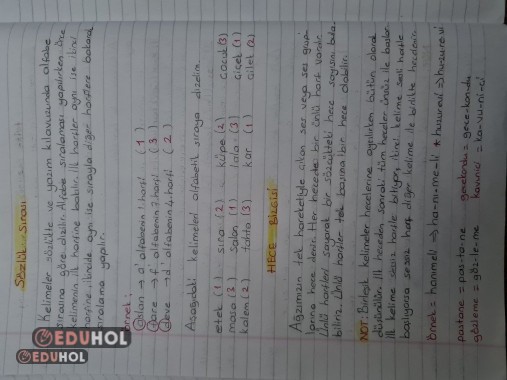 SÖZLÜK SIRASI
Kelimeler sözlükte ve yazım kılavuzunda alfabe
sırasına göre dizilir. Alfabe sıralaması yapılırken önce
kelimenin ilk harfine bakılır. İlk harfler aynı ise ikinci
harfine, ikincide aynı ise sırayla diğer harflere bakarak
sıralama yapılır.
Örnek:
→ a: alfabenin 1. harfi (1)
fare → f: alfabenin 7. harfi (3)
deve → d: alfabenin harfi (2)
Aşağıdaki kelimeleri alfabetik sıraya dizelim.
etek (1) sıra (2) küpe (2) çocuk (3)
masa (3) salon (1) lala (3) çiçek (1)
kalem (2) tahta (3) kar (1) çilek (2)
HECE BİLGİSİ
Ağzımızın tek hareketiyle çıkan ses veya ses grup-
larına hece denir. Her hecede bir ünlü harf vardır.
Ünlü harfleri sayarak bir sözcükteki hece sayısını bula-
biliriz. Ünlü harfler tek başına bir hece olabilir.
NOT: Birleşik kelimeler hecelerine ayrılırken bütün olarak
düşünülür. İlk heceden sonraki tüm heceler ünsüz ile başlar.
İlk kelime sessiz harfle bitiyor, ikinci kelime sesli harfle
başlıyorsa sessiz harf diğer kelime ile birlikte hecelenir.
Örnek = hanımeli → ha-nı-me-li * huzurevi → hu-zu-re-vi
pastane = pas-ta-ne gecekondu = ge-ce-kon-du
gözleme = göz-le-me kavunici = ka-vu-ni-ci
EDUHOL
EDUHOL